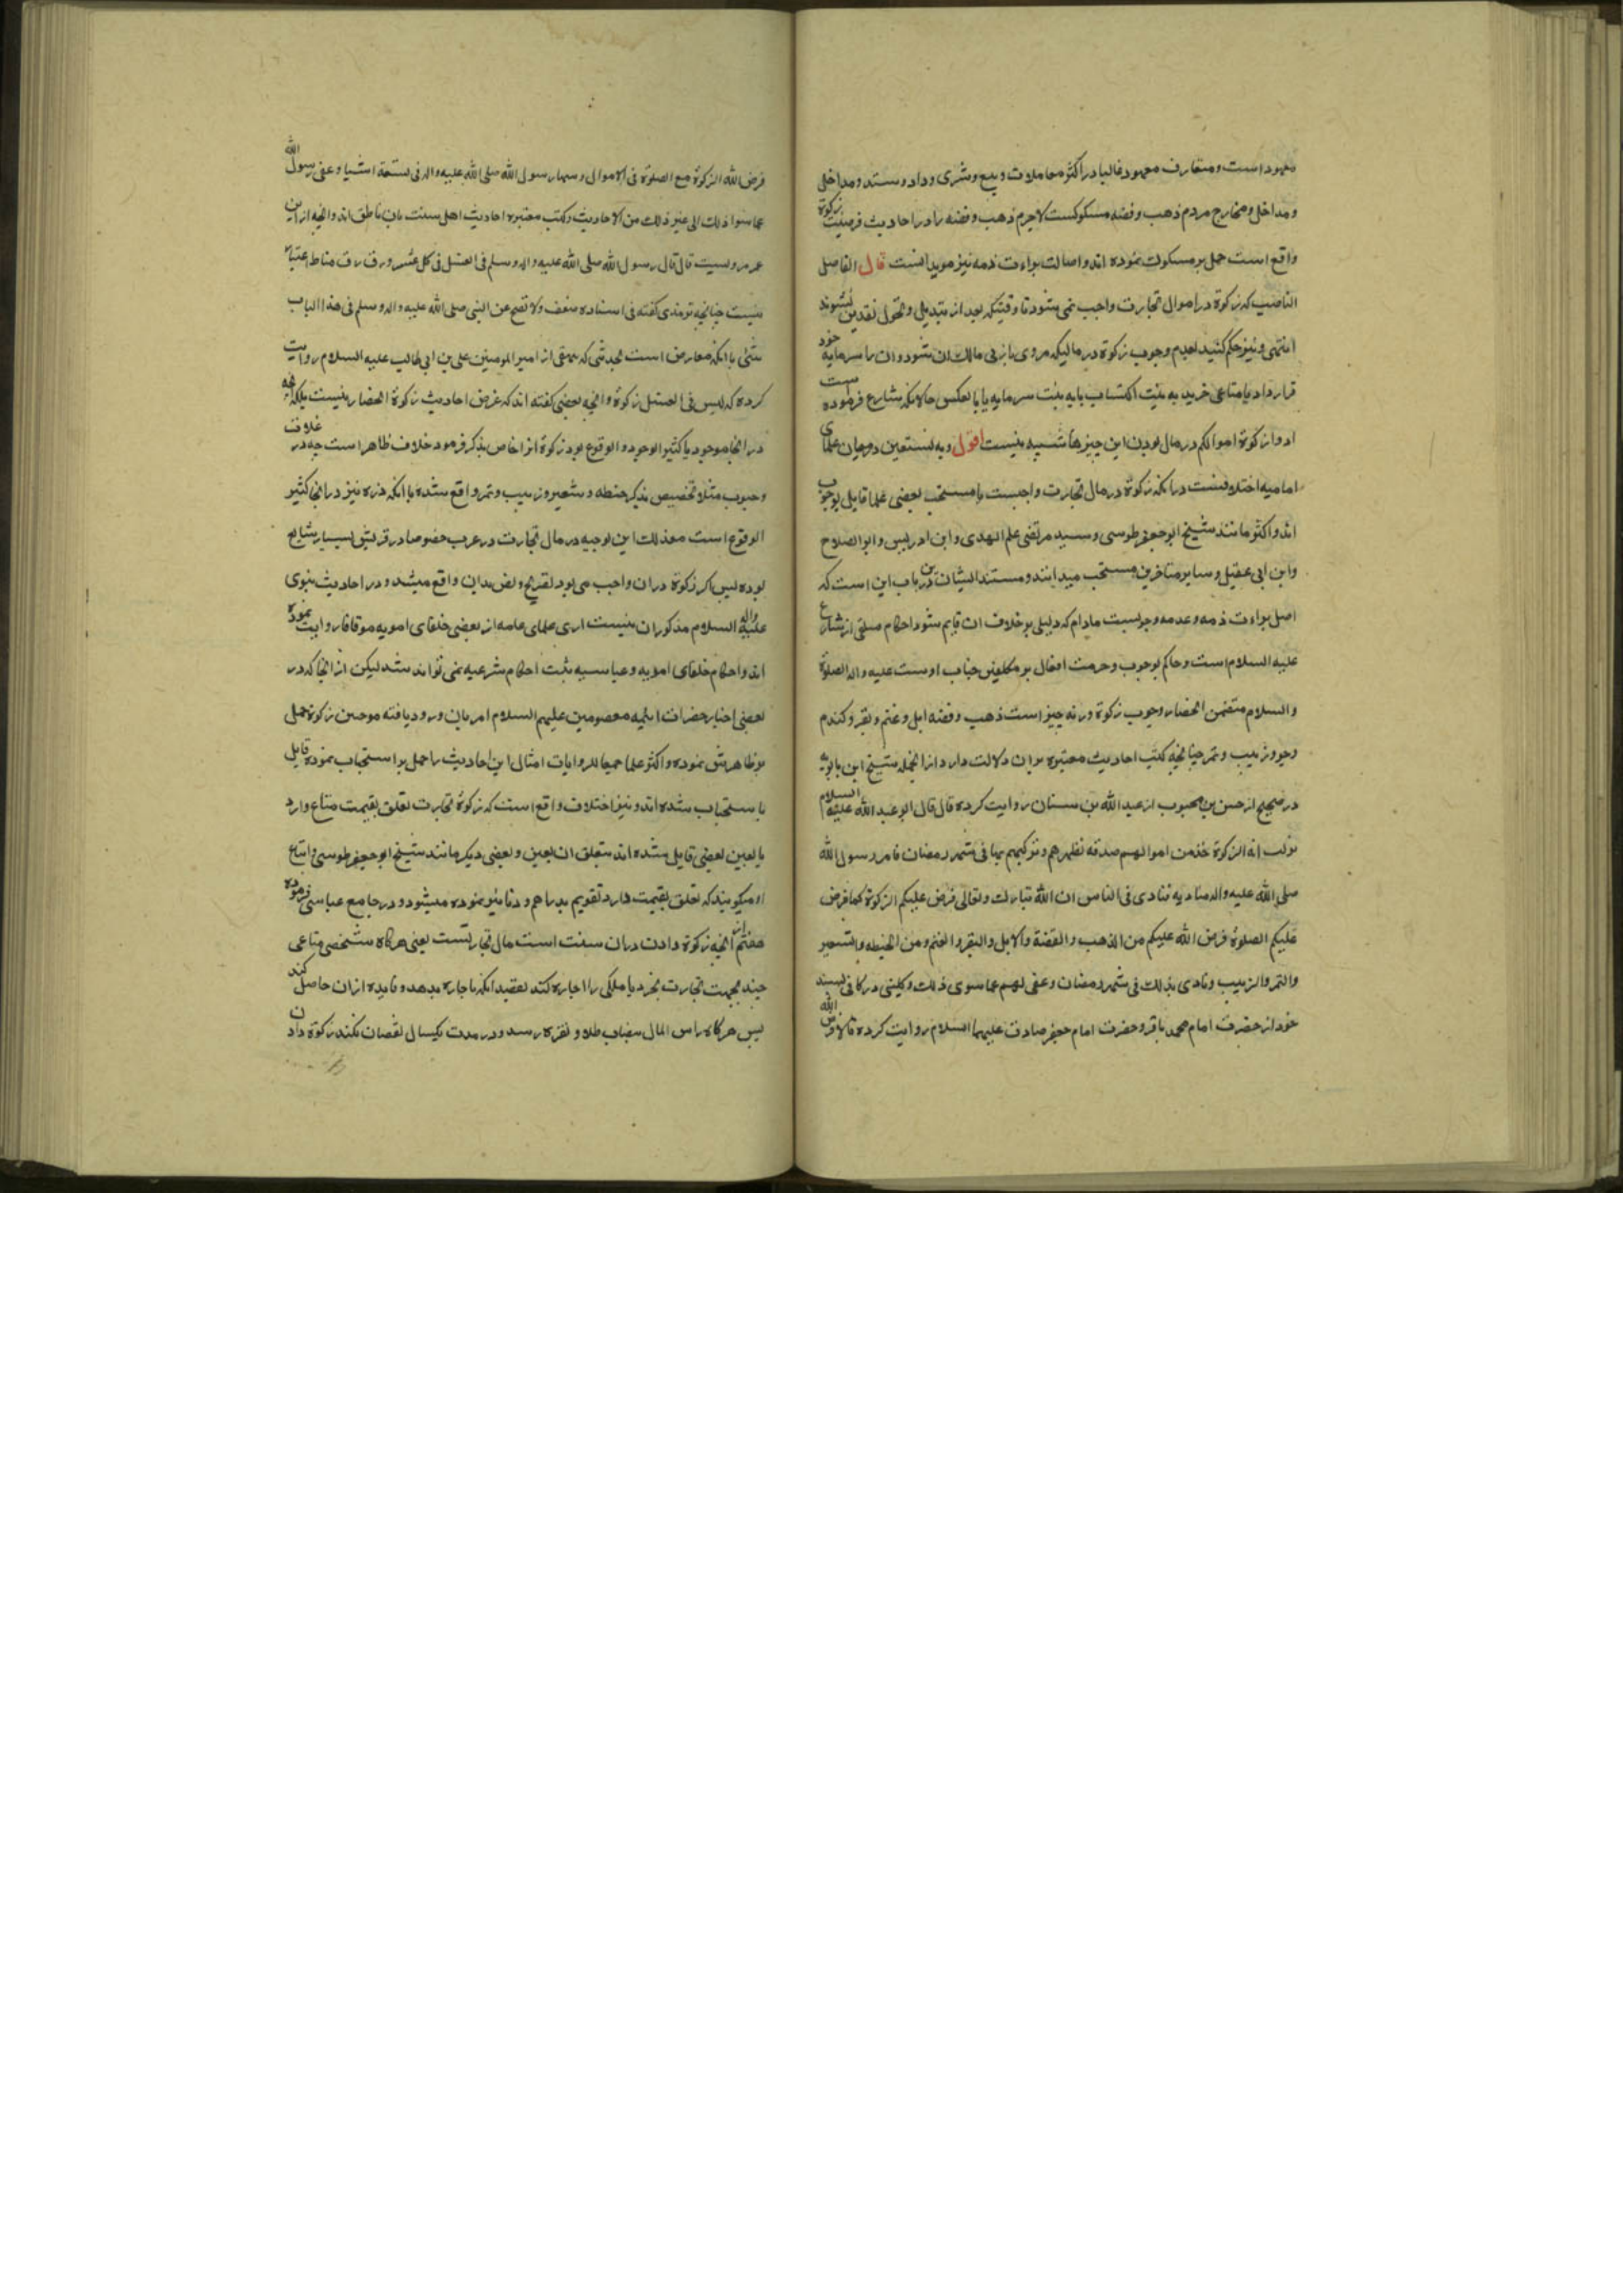 معهود است و متعارف معهود غالبا در اکثر معاملات و بیع و شری و داد و ستد و مداخل
و مداخل و مخارج مردم ذهب و فضه مسکوکست لاجرم ذهب و فضه را در احادیث فرضیت زکوة
واقع است حمل بر مسکوک نموده اند و اصالت براءت ذمه نیز موید انست قال الفاضل
الناصب که زکوة در اموال تجارت واجب نمی شود تا وقتیکه بعد از تبدیل و تحول نقدین نشوند
انتهی و نیز حکم کنید بعدم وجوب زکوة در مالیکه مروی باز نی مالک ان شود و ان را سرمایه خود
قرار داد یا متاعی خرید به نیت اکتساب یا به نیت سرمایه یا بالعکس حالانکه شارع فرموده است
ادوا زکوة اموالکم در مال بودن این چیزها شبهه نیست اقول و به نستعین درمیان علمای
امامیه اختلافست در انکه زکوة در مال تجارت واجبست یا مستحب بعضی علما قایل بوجوب
اند و اکثر مانند شیخ ابو جعفر طوسی و سید مرتضی علم الهدی و ابن ادریس و ابو الصلاح
و ابن ابی عقیل و سایر متاخرین مستحب میدانند و مستند ایشان درین باب این است که
اصل براءت ذمه و عدم وجوبست مادام که دلیلی بر خلاف ان قایم شود احکام متلقی از شارع
علیه السلام است و حاکم بوجوب و حرمت افعال بر مکلفین جناب اوست علیه و اله الصلوة
و السلام متضمن انحصار وجوب زکوة در نه چیز است ذهب و فضه ابل و غنم و بقر و کندم
و جو و زبیب و تمر چنانچه کتب احادیث معتبره بران دلالت دارد از انجمله شیخ ابن بابویه
در صحیح از حسن بن محبوب از عبد الله بن سنان روایت کرده قال قال ابو عبد الله علیه السلام
نزلت ایه الزکوة خذ من اموالهم صدقه تطهرهم و تزکیهم بها فی شهر رمضان فامر رسول الله
صلی الله علیه و اله منادیه فنادی فی الناس ان الله تبارک و تعالی فرض علیکم الزکوة کما فرض
علیکم الصلوة فرض الله علیکم من الذهب و الفضة و الابل و البقر و الغنم و من الحنطه و الشعیر
و التمر و الزبیب و نادی بذلک فی شهر رمضان و عفی لهم عما سوی ذلک و کلینی در کافی بسند
خود از حضرت امام محمد باقر و حضرت امام جعفر صادق علیهما السلام روایت کرده قالا فرض الله
فرض الله الزکوة مع الصلوة فی الاموال و سنها رسول الله صلی الله علیه و اله فی تسعة اشیا و عفی رسول الله
عما سوا ذلک الی غیر ذلک من الاحادیث و کتب معتبره احادیث اهل سنت بان ناطق اند و انچه از ابن
عمر مرویست قال قال رسول الله صلی الله علیه و اله و سلم فی العسل فی کل عشر زق زق مناط اعتبار
نیست چنانچه ترمذی کفته فی اسناده ضعف و لا تصح عن النبی صلی الله علیه و اله و سلم فی هذا الباب
شئی با انکه معارض است بحدیثی که بیهقی از امیر المومنین علی بن ابی طالب علیه السلام روایت
کرده که لیس فی العسل زکوة و انچه بعضی کفته اند که غرض احادیث زکوة انحصار نیست بلکه انچه
در انجا موجود یا کثیر الوجود و الوقوع بود زکوة انرا خاص بذکر فرمود خلاف ظاهر است چه در غلات
و حبوب مثلا تخصیص بذکر حنطه و شعیر و زبیب و تمر واقع شده با انکه ذره نیز در انجا کثیر
الوقوع است معذلک این توجیه در مال تجارت در عرب خصوصا در قریش بسیار شایع
بوده پس اکر زکوة دران واجب می بود تصریح و نص بدان واقع میشد و در احادیث نبوی
علیه و اله السلام مذکور ان نیست اری علمای عامه از بعضی خلفای امویه موقوفا روایت نموده
اند و احکام خلفای امویه و عباسیه مثبت احکام شرعیه نمی تواند شد لیکن از انجا که در
بعضی اخبار حضرات ائمه معصومین علیهم السلام امر بان ورود یافته موجبین زکوة حمل
بر ظاهرش نموده و اکثر علما جمعا للروایات امثال این احادیث را حمل بر استحباب نموده قایل
باستحباب شده اند و نیز اختلاف واقع است که زکوة تجارت تعلق بقیمت متاع دارد
یا بعین بعضی قایل شده اند بتعلق ان بعین و بعضی دیکر مانند شیخ ابو جعفر طوسی و اتباع
او میکویند که تعلق بقیمت دارد تقویم بدراهم و دنانیر نموده میشود و در جامع عباسی فرموده
هفتم انچه زکوة دادن دران سنت است مال تجارتست یعنی هرکاه شخصی متاعی
چند بجهت تجارت بخرد یا ملکی را اجاره کند بقصد انکه باجاره بدهد و فایده ازان حاصل کند
پس هرکاه راس المال بنصاب طلا و نقره رسد و در مدت یکسال نقصان نکند زکوة دادن